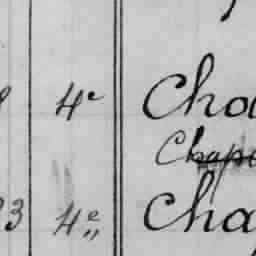 4e Cha
Chap
3 4e Cha